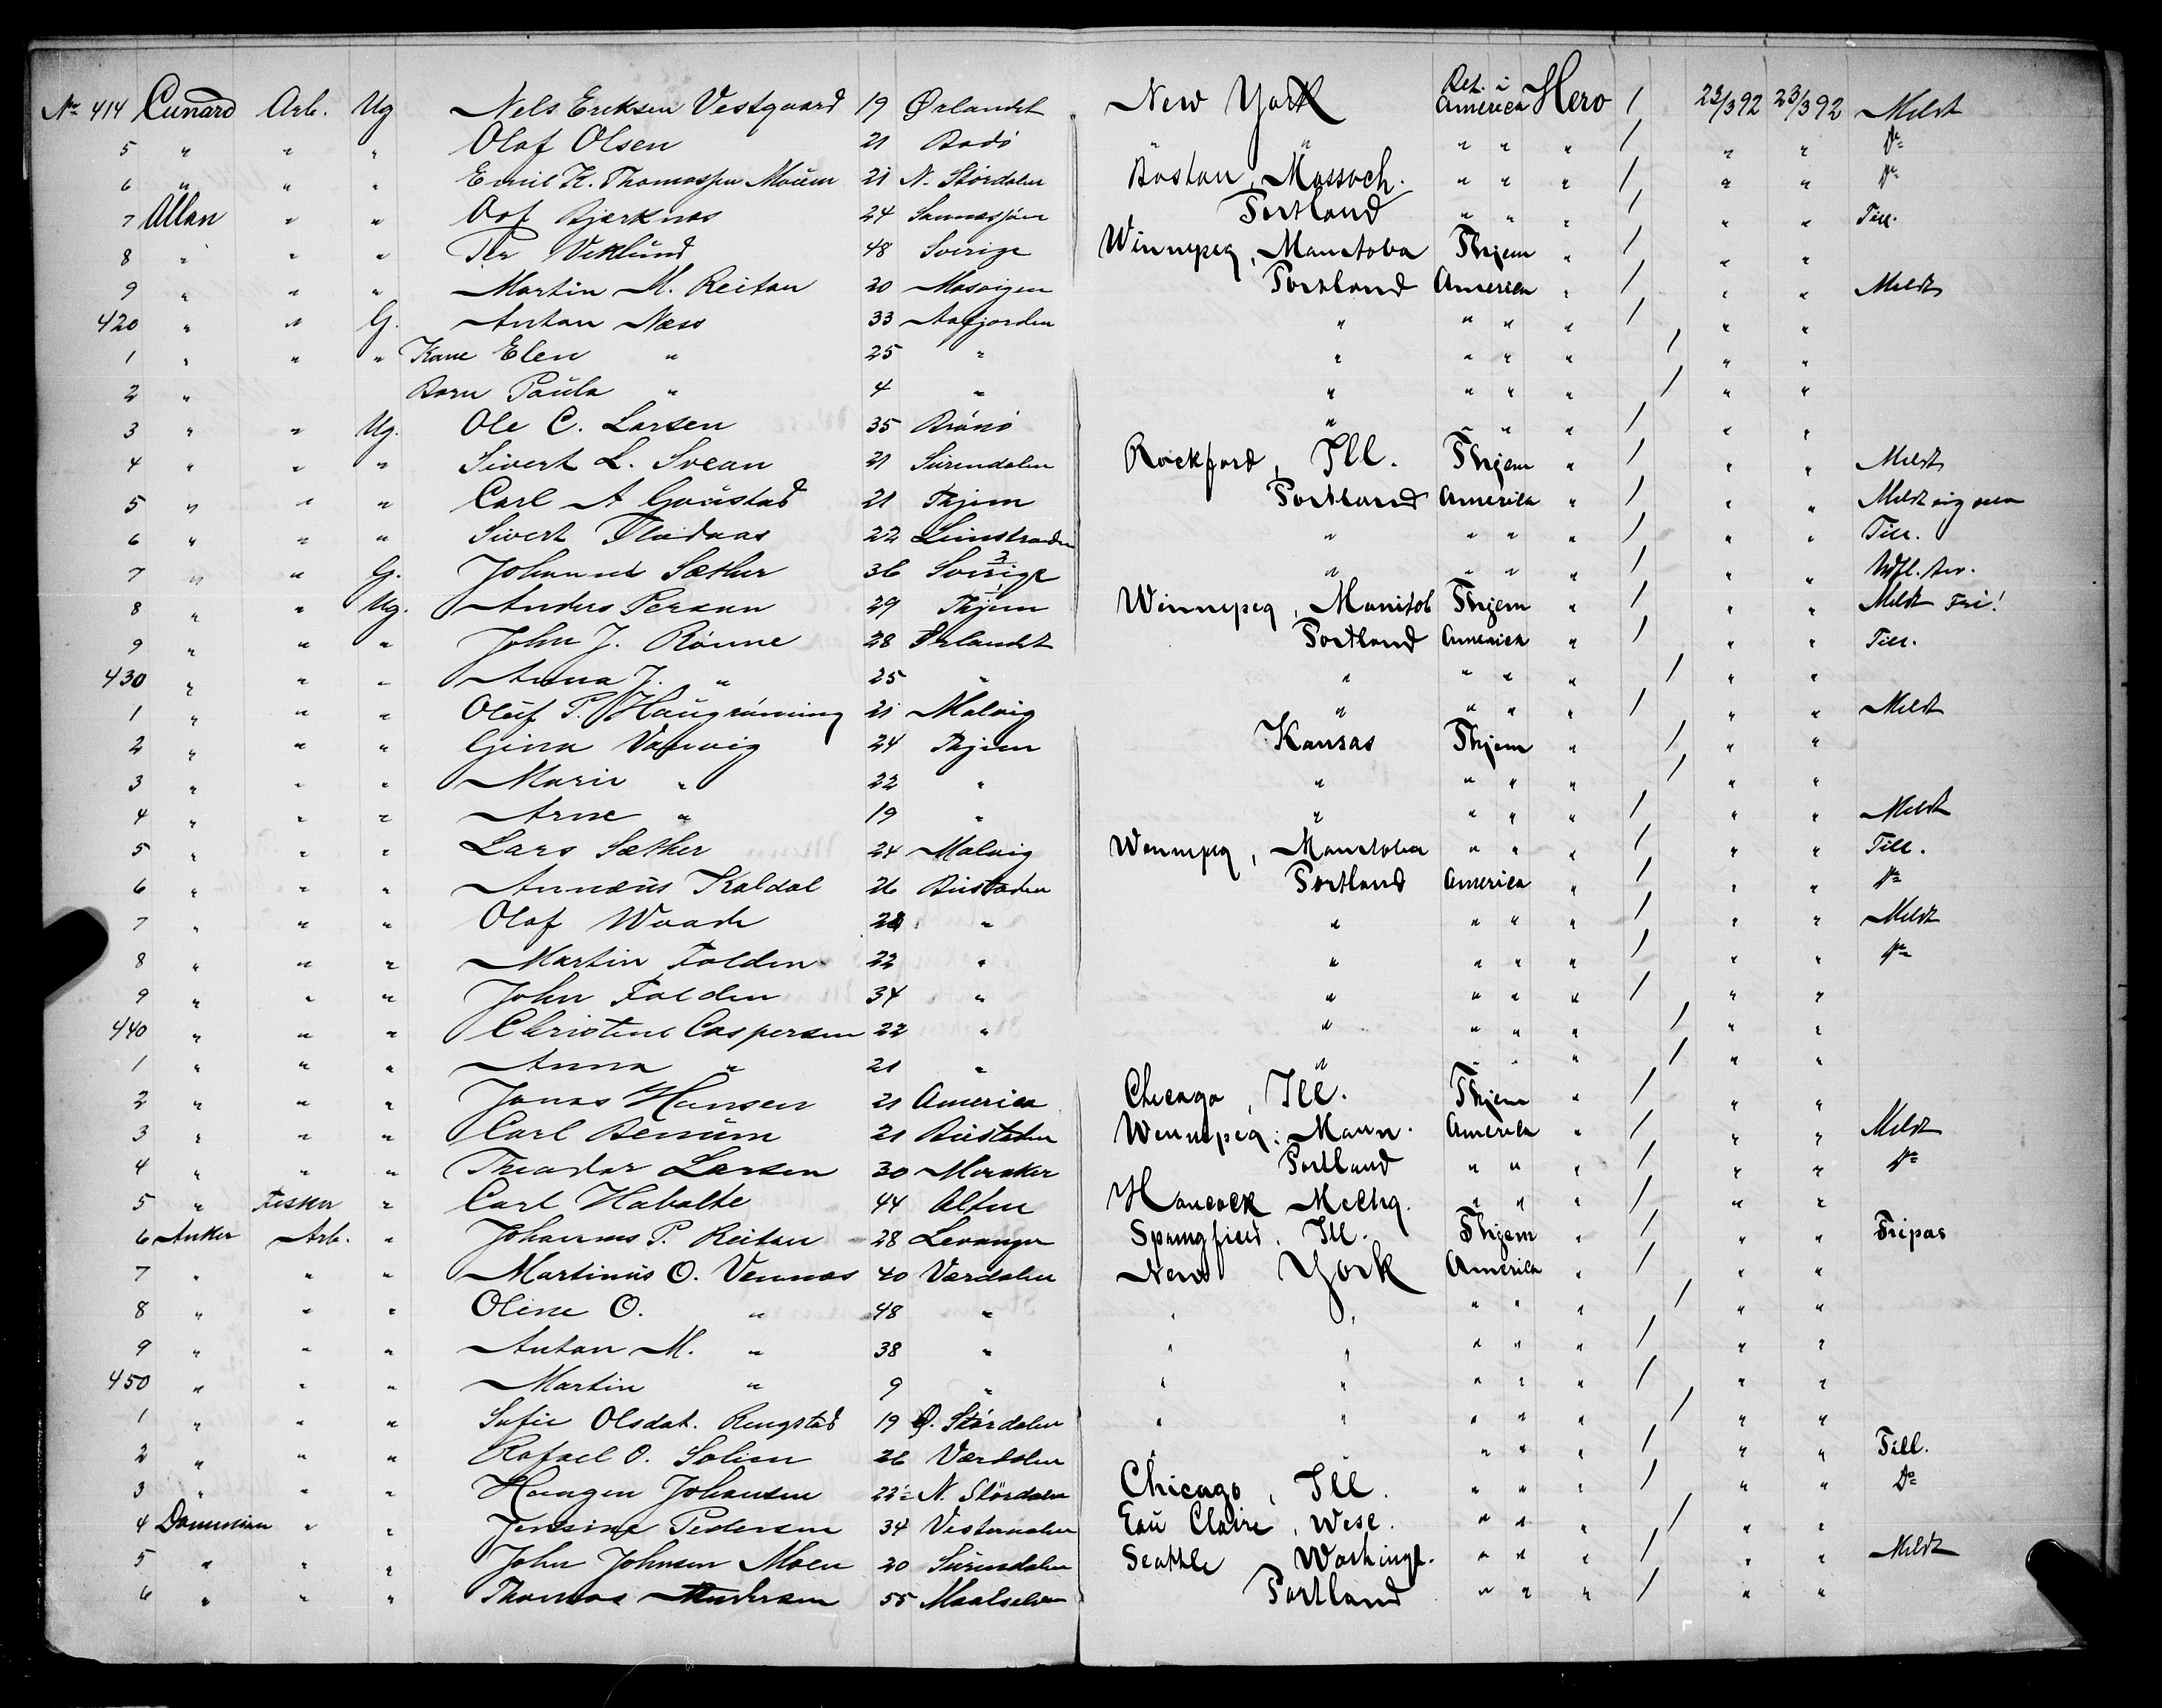 No 414 Cunard Arb. Ug Nels Eriksen Vestgaard 19 Ørlandet New York Bet. i America Hero / 23/3 92 23/3 92 Meldt
5 " " " Olaf Olsen 21 Bodö " " " " " / " " Do
6 " " " Emil K. Thomassen Moüm 21 N. Stördalen Boston, Massach. " " " / " " Do
7 Allan " " Oof Bjerknes 24 Portland " " " / " " Till.
8 " " " Per Viklünd 48 Sverige Winnepeg, Manitoba Thjem " / " "
9 " " " Martin M. Reitan 20 Mosvigen Portland America " / " " Meldt
420 " " G. Anton Næss 33 Aafjorden " " " " / " "
1 " " " Kone Elen " 25 " " " " " / " "
2 " Barn Paüla " 4 " " " " " / " "
3 " " Ug. Ole C. Larsen 35 Brönö " " " " / " "
4 " " " Sivert L. Svean 21 Sürendalen Rockford, Ill. Thjem " / " " Meldt
5 " " " Carl A 21 Thjem Portland America " / " " Meldt sig
6 " " " Sivert Flodaas 22 Leinstranden " " " " / " " Till.
7 " " G. Johannes Sæther 36 Sverige " " " " / " "
8 " " Ug. Anders Persson 29 Thjem Winnepeg, Manitob Thjem " / " " Meldt Fri!
9 " " " John J. Rönne 28 Ørlandet Portland America " / " " Till.
430 " " " Anna J. " 25 " " " " " / " "
1 " " " Olüf P. Haügrönning 21 Malvig " " " " / " " Meldt
2 " " " Gina 24 Thjem Kansas Thjem " / " "
3 " " " Marie " 22 " " " " " / " "
4 " " " Arne " 19 " " " " " / " " Meldt
5 " " " Lars Sæther 24 Malvig Wennepeg, Manitoba " " " / " " Till.
6 " " " Annæüs Kaldal 26 Büstaden Portland America " / " " Do
7 " " " Olaf Waade " " " " " / " " Meldt
8 " " " Martin Folden 22 " " " " " / " " Do
9 " " " John Folden 34 " " " " " / " "
440 " " " Christine Caspersen 22 " " " " " / " "
1 " " " Anna " 21 " " " " " / " "
2 " " " Jonas Hansen 21 America Chicago, Ill. Thjem " / " "
3 " " " Carl Benüm 21 Büstaden Wennepeg: Mann. America " / " " Meldt
4 " " " Theodor Larsen 30 Meraker Portland " " " / " " Do
5 " Fisker " Carl Habatte 44 Alten Hancock Michg. " " " / " "
6 Anker Arb. " Johannes P. Reitan 28 Levanger Springfield, Ill. Thjem " / " " Fripas
7 " " " Martinüs O. Vennes 40 Værdalen New York America " / " "
8 " " " Oline O. " 48 " " " " " " / " "
9 " " " Anton M. " 38 " " " " " " / " "
450 " " " Martin " 9 " " " " " " / " "
1 " " " Sofie Olsdat. Ringstad 19 Ø. Stördalen " " " " " / " "
2 " " " Rafael O. Solien 26 Værdalen " " " " " / " " Till.
3 " " " Haagen Johansen 22 N. Stördalen Chicago, Ill. " " " / " " Do
4 Dominion " " Jensine Pedersen 34 Eaü Claire, Wisc. " " " / " "
5 " " " John Johnsen Moen 20 Sürendalen Seattle Washingt. " " " / " " Meldt
6 " " " Thomas Andersen 55 Maalselven Portland " " " / " "